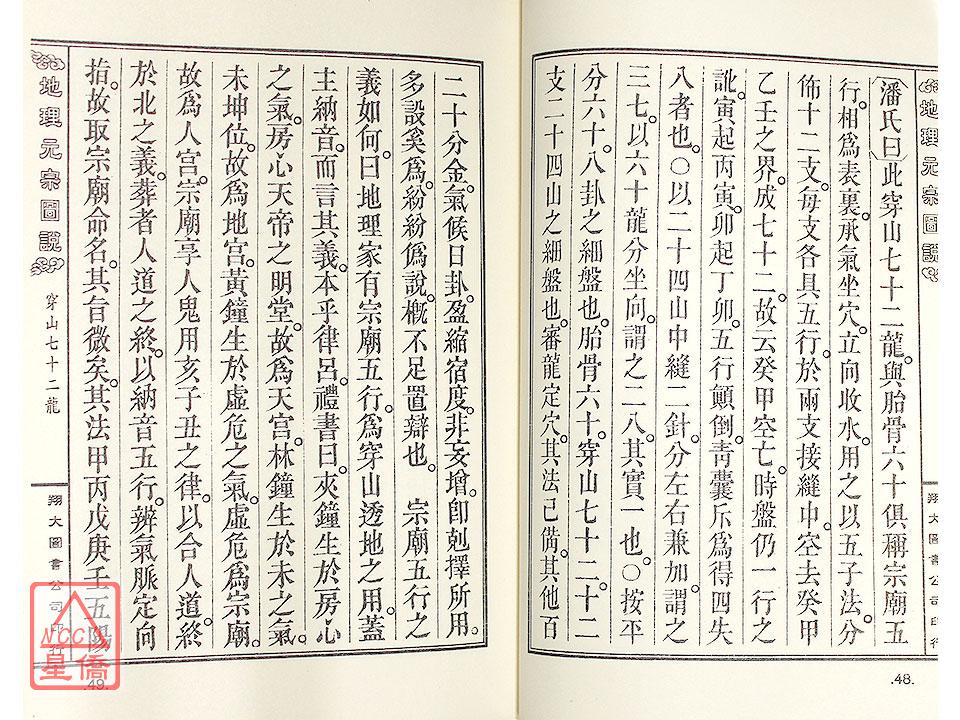 地理元宗圖說
翔大圖書公司印行
潘氏曰此穿山七十二龍。與胎骨六十俱稱宗廟五
行。相為表裏。承氣坐穴。立向收水。用之以五子法。分
佈十二支。每支各具五行。於兩支接縫中。空去癸甲
乙壬之界。成七十二。故云癸甲空亡。時盤仍一行之
訛。寅起丙寅。卯起丁卯。五行顛倒。青囊斥為得四失
八者也。○以二十四山中縫二針。分左右兼加。謂之
三七。以六十龍分坐向。謂之二八。其實一也。○按平
分六十。八卦之細盤也。胎骨六十。穿山七十二。十二
支二十四山之細盤也。審龍定穴。其法已備。其他百
.48.
二十分金。氣候日卦。盈縮宿度。非妄增。即剋擇所用。
多設奚為。紛紛偽說。概不足置辯也。　宗廟五行之
義如何。曰地理家有宗廟五行。為穿山透地之用。蓋
主納音。而言其義。本乎律呂。禮書曰。夾鐘生於房心
之氣。房心天帝之明堂。故為天宮。林鐘生於未之氣。
未坤位。故為地宮。黃鐘生於虛危之氣。虛危為宗廟。
故為人宮。宗廟享人鬼用亥子丑之律。以合人道。終
於北之義。葬者人道之終。以納音五行。辨氣脈定向
指。故取宗廟命名。其旨微矣。其法甲丙戊庚壬五陽
地理元宗圖說
穿山七十二龍
翔大圖書公司印行
.49.
NCC
星僑